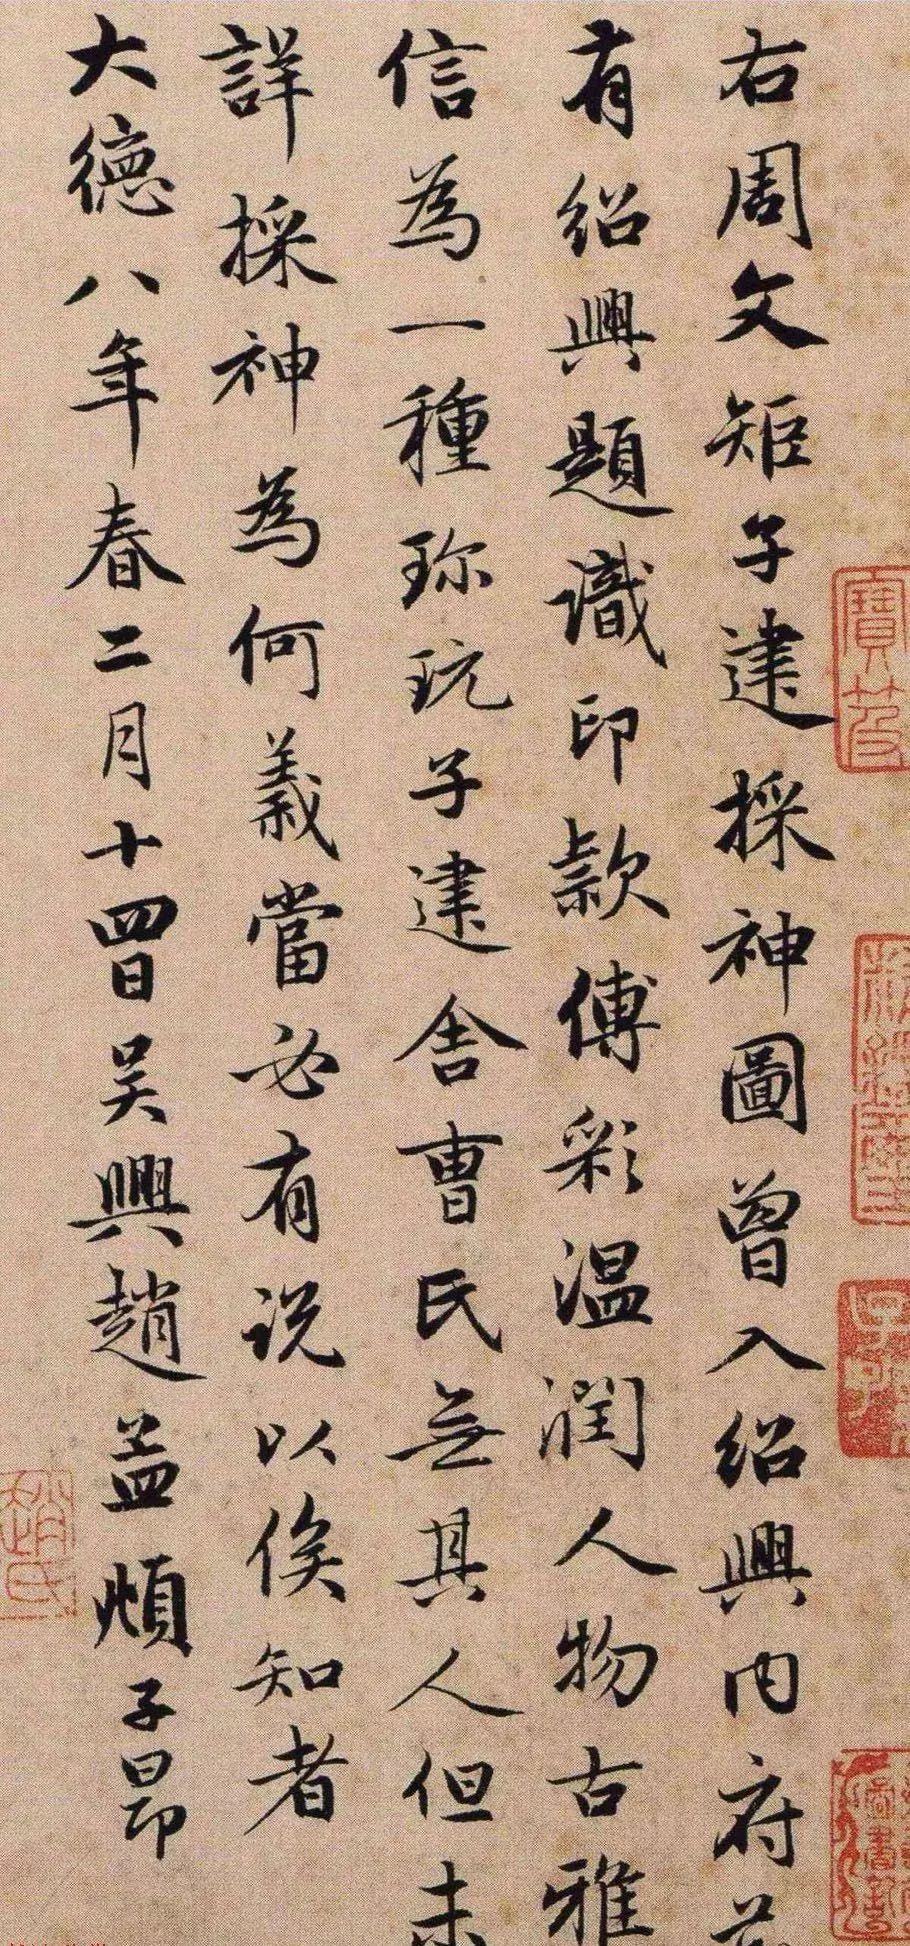 右周文矩子建採神圖曾入紹興內府
有紹興題識印款傅彩温潤人物古雅
信為一種珎玩子建舍曹氏無其人但未
詳採神為何義當必有説以俟知者
大德八年春二月十四日吴興趙孟頫子昂
趙氏